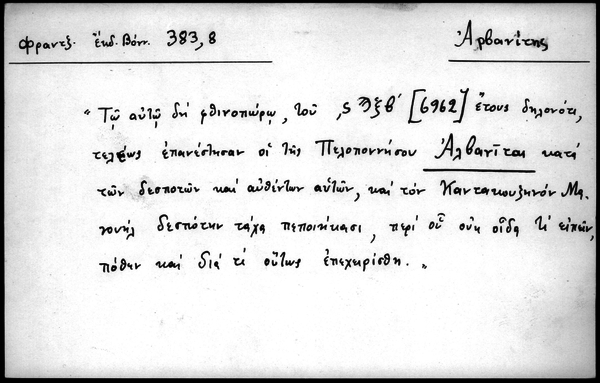 Φραντζ. ἔκδ. Βόνν. 383,8
Ἀρβανίτης
"Τῷ αὐτῷ δὴ φθινοπώρῳ, τοῦ ,ϛϡξβ' [6962] ἔτους δηλονότι,
τελείως ἐπανέστησαν οἱ τῆς Πελοποννήσου Ἀλβανῖται κατὰ
τῶν δεσποτῶν καὶ αὐθέντων αὐτῶν, καὶ τὸν Καντακουζηνὸν Μα-
νουὴλ δεσπότην τάχα πεποιήκασι, περὶ οὗ οὐκ οἶδα τί εἰπεῖν,
πόθεν καὶ διὰ τί οὕτως ἐπεχειρίσθη."